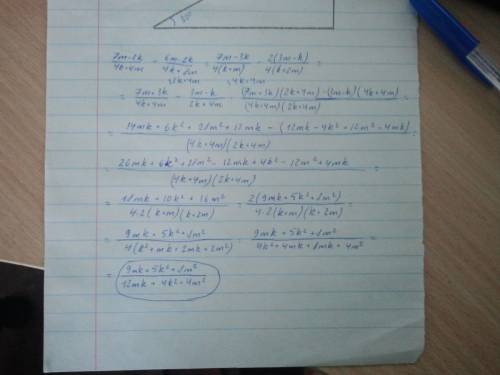 7m-3k/4k+4m - 6m-2k/4k+8m = 7m-3k/4(k+m) - 2(3m-k)/4(k+2m) =
= 7m+3k/4k+4m - 3m-k/2k+4m = (7m+3k)(2k+4m)-(3m-k)(4k+4m)/(4k+4m)(2k+4m) =
= 14mk+6k²+28m²+12mk-(12mk-4k²+12m²-4mk)/(4k+4m)(2k+4m) =
= 26mk+6k²+28m²-12mk+4k²-12m²+4mk/(4k+4m)(2k+4m) =
= 18mk+10k²+16m²/4·2(k+m)(k+2m) = 2(9mk+5k²+8m²)/4·2(k+m)(k+2m) =
= 9mk+5k²+8m²/4(k²+mk+2mk+2m²) = 9mk+5k²+8m²/4k²+4mk+8mk+4m² =
= 9mk+5k²+8m²/12mk+4k²+4m²